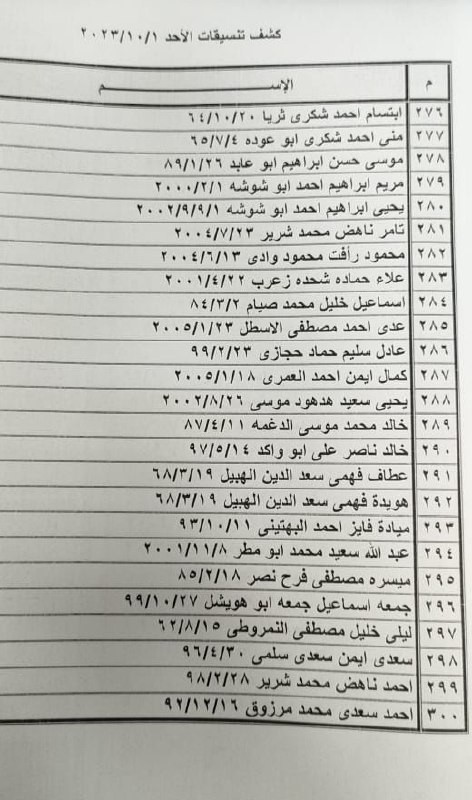 كشف تنسيقات الأحد ٢٠٢٣/١٠/١
م الإســـــــــــــــــــــــم
٢٧٦ ابتسام احمد شكرى ثريا ٦٤/١٠/٢٠
٢٧٧ منى احمد شكرى ابو عوده ٦٥/٧/٤
٢٧٨ موسى حسن ابراهيم ابو عابد ٨٩/١/٢٦
٢٧٩ مريم ابراهيم احمد ابو شوشه ٢٠٠٠/٢/١
٢٨٠ يحيى ابراهيم احمد ابو شوشه ٢٠٠٢/٩/٩/١
٢٨١ تامر ناهض محمد شرير ٢٠٠٤/٧/٢٣
٢٨٢ محمود رأفت محمود وادى ٢٠٠٤/٦/١٣
٢٨٣ علاء حماده شحده زعرب ٢٠٠١/٤/٢٢
٢٨٤ اسماعيل خليل محمد صيام ٨٤/٣/٢
٢٨٥ عدى احمد مصطفى الاسطل ٢٠٠٥/١/٢٣
٢٨٦ عادل سليم حماد حجازى ٩٩/٢/٢٣
٢٨٧ كمال ايمن احمد العمرى ٢٠٠٥/١/١٨
٢٨٨ يحيى سعيد هدهود موسى ٢٠٠٢/٨/٢٦
٢٨٩ خالد محمد موسى الدغمه ٨٧/٤/١١
٢٩٠ خالد ناصر على ابو واكد ٩٧/٥/١٤
٢٩١ عطاف فهمى سعد الدين الهبيل ٦٨/٣/١٩
٢٩٢ هويدة فهمى سعد الدين الهبيل ٦٨/٣/١٩
٢٩٣ ميادة فايز احمد البهتينى ٩٣/١٠/١١
٢٩٤ عبد الله سعيد محمد ابو مطر ٢٠٠١/١١/٨
٢٩٥ ميسره مصطفى فرح نصر ٨٥/٢/١٨
٢٩٦ جمعه اسماعيل جمعه ابو هويشل ٩٩/١٠/٢٧
٢٩٧ ليلى خليل مصطفى النمروطى ٦٢/٨/١٥
٢٩٨ سعدى ايمن سعدى سلمى ٩٦/٤/٣٠
٢٩٩ احمد ناهض محمد شرير ٩٨/٢/٢٨
٣٠٠ احمد سعدى محمد مرزوق ٩٢/١٢/١٦